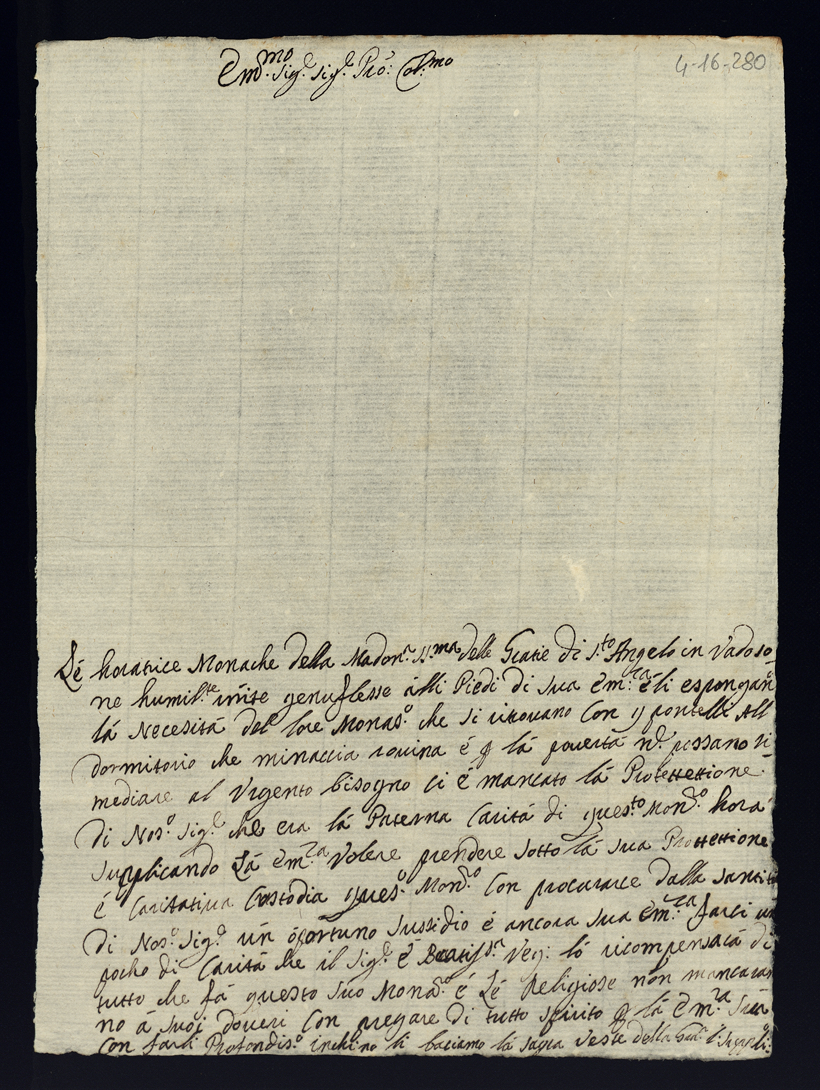 4-16-280
Em.mo Sig.e Sig.e Prõ: Col:mo
Lé horatrice Monache della Madon.a SS.ma delle Gratie di S.to Angelo in Vadoso
ne humil.te unite genuflesse álli Piedi di Sua Em.za é li espongan
lá Necesitá del loro Monas.o che si ritrovano Con pontelli All
dormitorio che minaccia rovina é p lá povertá n.o possano ri
mediare al Urgento bisogno ci é mancato lá Protettione
di Nos.o Sig.e che era lá Paterna Caritá di ques.to Mon.o hora
Supplicando Lá Em.za Volere prendere Sotto lá Sua Protettione
é Caritativa Custodia ques.o Mon.o Con procurare dalla Santitá
di Nos.o Sig.e un óportuno Sussidio é ancora Sua Em.za farci un
pocho di Caritá che il Sig.e é Ver: ló ricompenserá di
tutto che fá questo Suo Mona.o é Lé Religiose nón mancaran
no á Suoi doveri Con pregare di tutto Spirito p lá Em.za Sua
Con farli Profondis.o inchino li baciamo lá Sagra Veste della